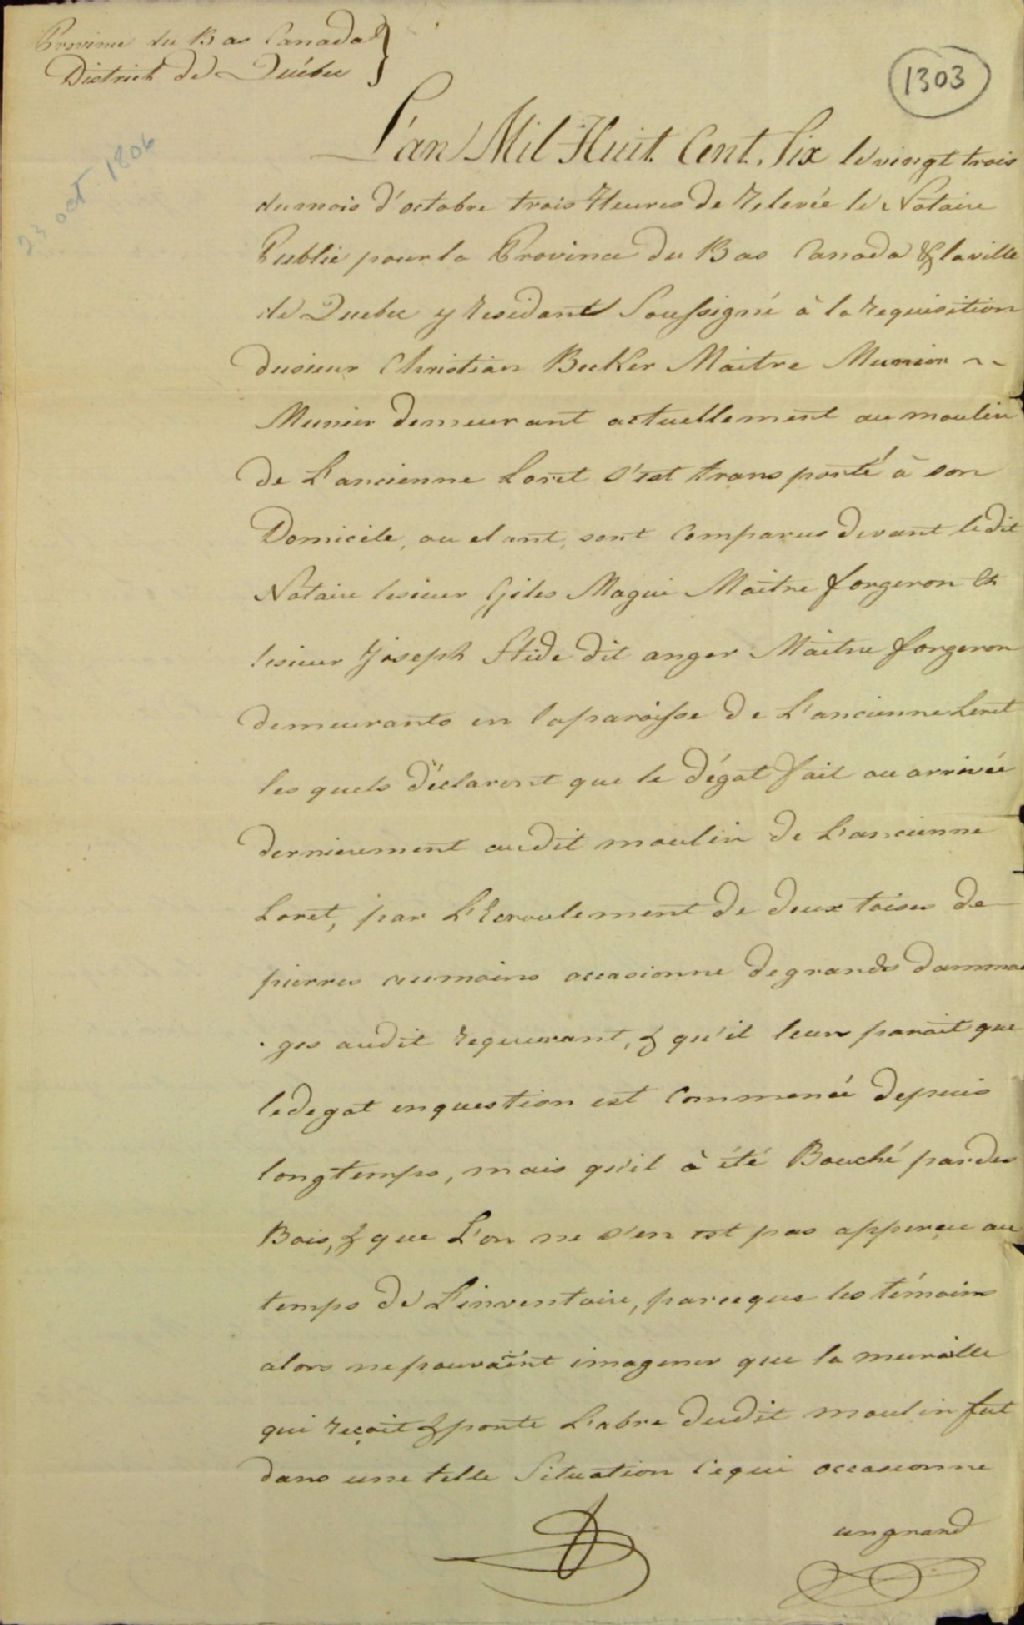 Province du Bas Canada }
District de Québec
1303
23 oct 1806
L'an Mil Huit Cent Six le vingt trois
du mois d'octobre trois Heures de Relevée le Notaire
Public pour la Province du Bas Canada & la ville
de Quebec y Residant Soussigné à la requisition
du sieur Christian Becker Maitre Munier
Munier demeurant actuellement au moulin
de L'ancienne Loret s'est transporté à son
Domicile, ou etant, sont Comparus devant ledit
Notaire le sieur Giles Magui Maitre forgeron &
le sieur Joseph Stide dit anger Maitre forgeron
demeurants en la paroisse de L'ancienne Loret
les quels déclarent que le dégat fait ou arrivée
dernierement audit moulin de L'ancienne
Loret, par L'Ecroulement de deux toises de
pierres au moins occasionne de grands damma
ges audit requerant, & qu'il leur parait que
le degat en question est Commencé depuis
longtemps, mais qu'il à été Bouché par des
Bois, & que L'on ne s'en est pas apperçu au
temps de L'inventaire, parceque les témoins
alors ne pouvaint imaginer que la muraille
qui reçoit & porte L'abre dudit moulin fut
dans une telle Situation Ce qui occasionne
un grand